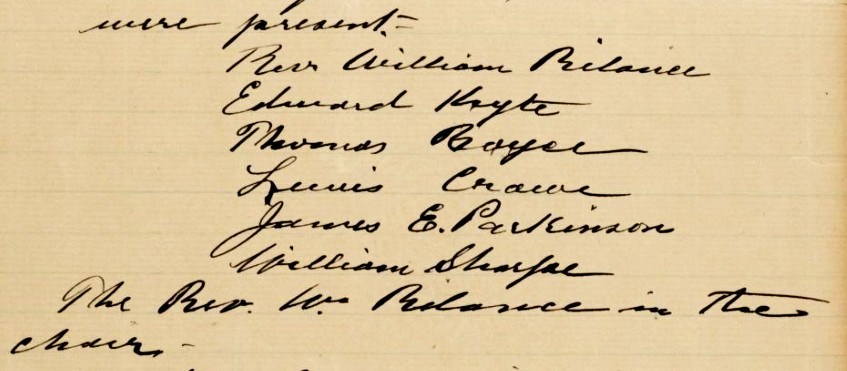 were present:-
Rev William Bilance
Edward Kryte
Thomas Boyce
Lewis Crowe
James E. Parkinson
William Sharpe
The Rev. Wm Bilance in the
chair,-